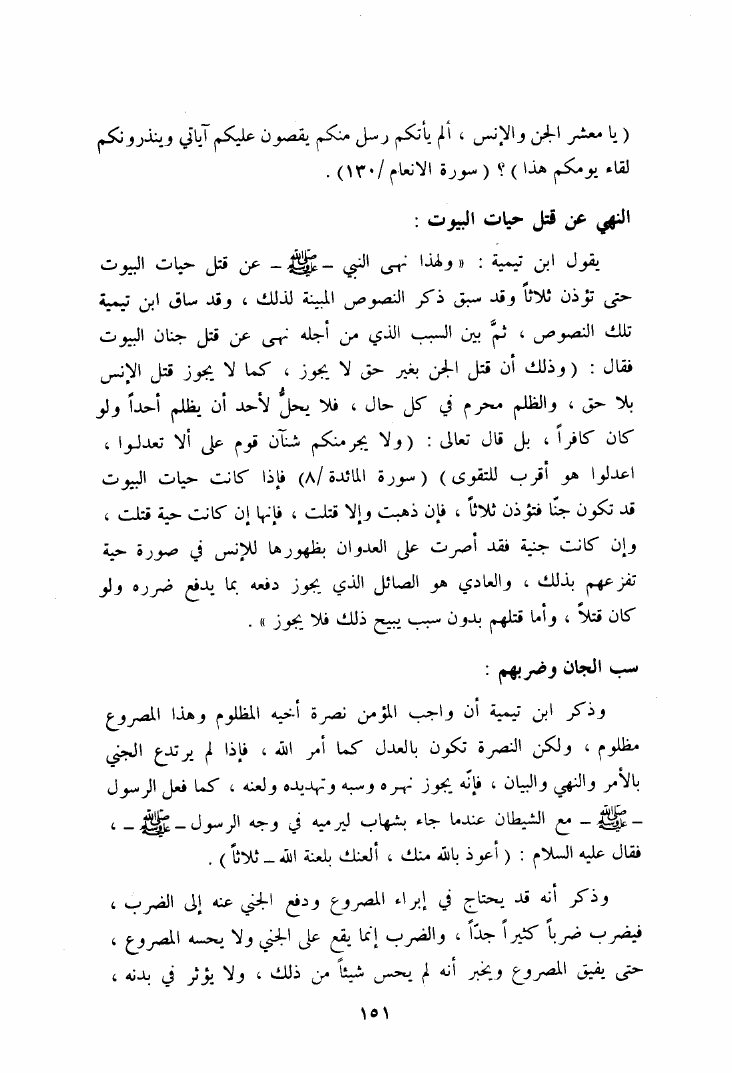 ( يا معشر الجن والإنس ، ألم يأتكم رسل منكم يقصون عليكم آياتي وينذرونكم
لقاء يومكم هذا ) ؟ ( سورة الانعام /١٣٠) .
النهي عن قتل حيات البيوت :
يقول ابن تيمية : « ولهذا نهى النبي – ﷺ – عن قتل حيات البيوت
حتى تؤذن ثلاثاً وقد سبق ذكر النصوص المبينة لذلك ، وقد ساق ابن تيمية
تلك النصوص ، ثمَّ بين السبب الذي من أجله نهى عن قتل جنان البيوت
فقال : ( وذلك أن قتل الجن بغير حق لا يجوز ، كما لا يجوز قتل الإنس
بلا حق ، والظلم محرم في كل حال ، فلا يحلُّ لأحد أن يظلم أحداً ولو
كان كافراً ، بل قال تعالى : ( ولا يجرمنكم شنآن قوم على ألا تعدلوا ،
اعدلوا هو أقرب للتقوى ) ( سورة المائدة /٨) فإذا كانت حيات البيوت
قد تكون جنّا فتؤذن ثلاثاً ، فإن ذهبت وإلا قتلت ، فإنها إن كانت حية قتلت ،
وإن كانت جنية فقد أصرت على العدوان بظهورها للإنس في صورة حية
تفزعهم بذلك ، والعادي هو الصائل الذي يجوز دفعه بما يدفع ضرره ولو
كان قتلاً ، وأما قتلهم بدون سبب يبيح ذلك فلا يجوز » .
سب الجان وضربهم :
وذكر ابن تيمية أن واجب المؤمن نصرة أخيه المظلوم وهذا المصروع
مظلوم ، ولكن النصرة تكون بالعدل كما أمر الله ، فإذا لم يرتدع الجني
بالأمر والنهي والبيان ، فإنّه يجوز نهره وسبه وتهديده ولعنه ، كما فعل الرسول
– ﷺ – مع الشيطان عندما جاء بشهاب ليرميه في وجه الرسول – ﷺ – ،
فقال عليه السلام : ( أعوذ بالله منك ، ألعنك بلعنة الله – ثلاثاً ) .
وذكر أنه قد يحتاج في إبراء المصروع ودفع الجني عنه إلى الضرب ،
فيضرب ضرباً كثيراً جدّاً ، والضرب إنما يقع على الجني ولا يحسه المصروع ،
حتى يفيق المصروع ويخبر أنه لم يحس شيئاً من ذلك ، ولا يؤثر في بدنه ،
١٥١